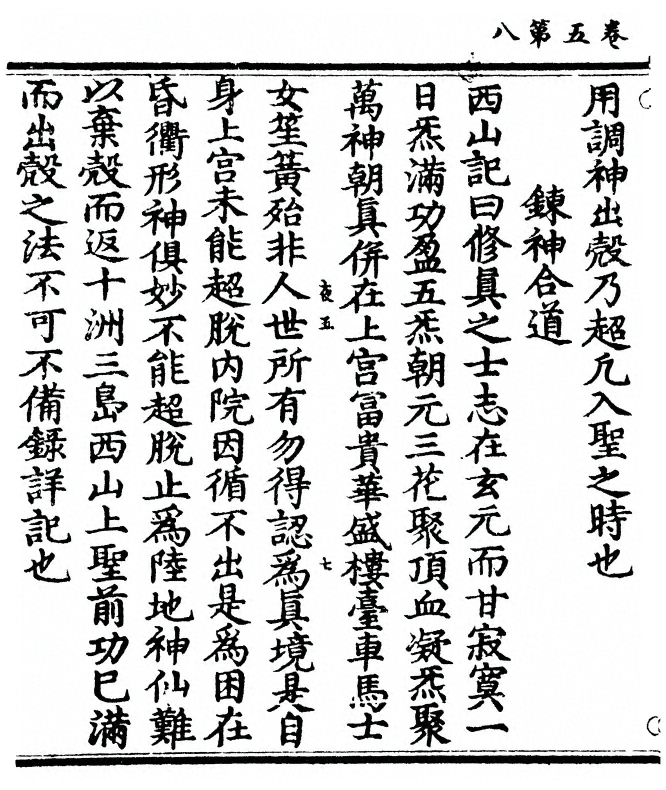 卷五第八
用調神出殼乃超凡入聖之時也
鍊神合道
西山記曰修眞之士志在玄元而甘寂寞一
日炁滿功盈五炁朝元三花聚頂血凝炁聚
萬神朝眞併在上宮富貴華盛樓臺車馬士
夜五
七
女笙簧殆非人世所有勿得認爲眞境是自
身上宮未能超脫內院因循不出是爲困在
昏衢形神俱妙不能超脫止爲陸地神仙難
以棄殼而返十洲三島西山上聖前功已滿
而出殼之法不可不備錄詳記也